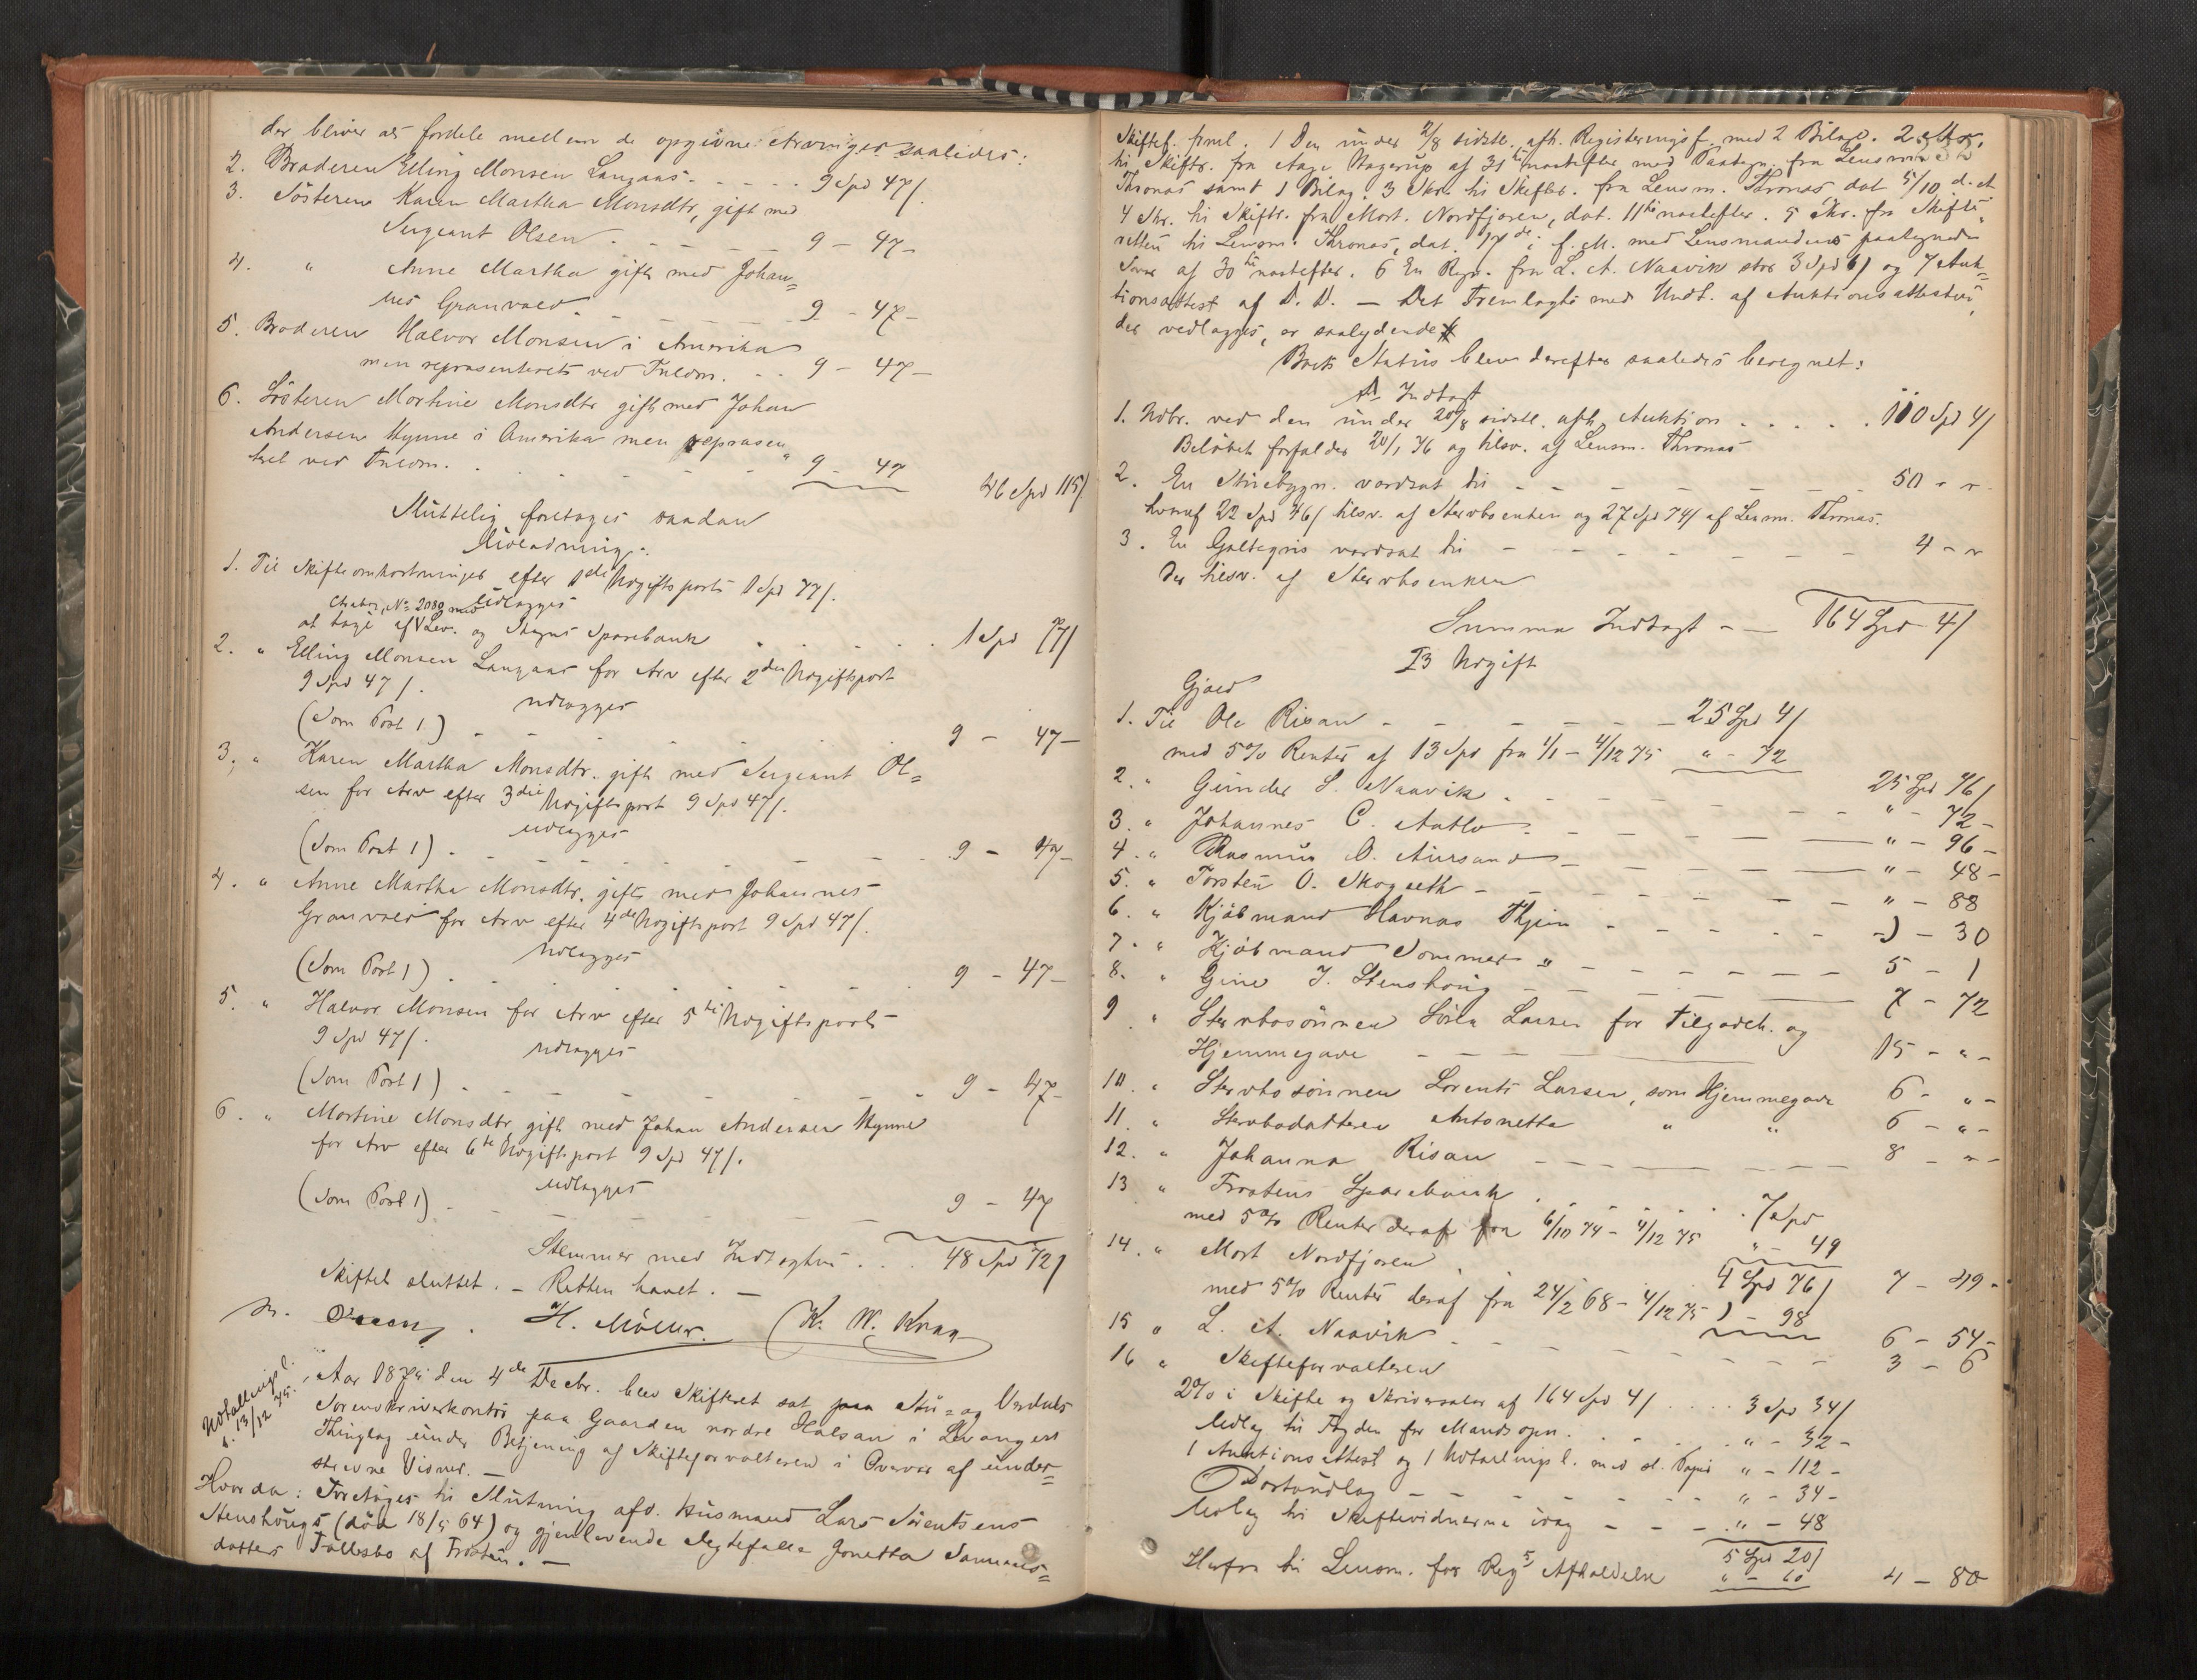 der bliver at fordele mellem de opgivne Arvinger saaledes:
2. Broderen Elling Monsen Langaas - - - - - 9 Spd 47/.
3. Søsteren Karen Martha Monsdtr, gift med
Sergeant Olsen . - - - - - 9 - 47 -
4. " Anne Martha gift med Johan=
nes Granvold . - - - - - 9 - 47 -
5. Broderen Halvor Monsen i Amerika
men repræsenteret ved Fuldm. - - - 9 - 47 -
6. Søsteren Martine Monsdtr gift med Johan
Andersen Mynne i Amerika men repræsen"
teret ved Fuldm. . . - - - - - 9 - 47
46 Spd 115/
Sluttelig foretages saadan
Udlodning:
1. Til Skifteomkostninger efter 1ste Udgiftspost 1 Spd 77/.
udlægges
at tage af Lev. og Skogns Sparebank . . . . . . 1 Spd 77/
Contrab. No 2080 med
2. " Elling Monsen Langaas for Arv efter 2den Udgiftspost
9 Spd 47/. udlægges
(Som Post 1) - - - - - 9 - 47 -
3. " Karen Martha Monsdtr. gift med Sergeant Ol=
sen for Arv efter 3die Udgiftspost 9 Spd 47/.
udlægges
(Som Post 1) . - - - - - 9 - 47 -
4. " Anne Martha Monsdtr. gift med Johannes
Granvold for Arv efter 4de Udgiftspost 9 Spd 47/.
udlægges
(Som Post 1) . . . . . 9 - 47 -
5. " Halvor Monsen for Arv efter 5te Udgiftspost
9 Spd 47/. udlægges
(Som Post 1) . - - - - - 9 - 47 -
6. " Martine Monsdtr gift med Johan Andersen Mynne
for Arv efter 6te Udgiftspost 9 Spd 47/.
udlægges
(Som Post 1) - - - - - 9 - 47
Stemmer med Indtægten . . . 48 Spd 72/
Skiftet sluttet. - Retten hævet. -
H. Möller. K. W. Krag
Udtællingsl.
d. 13/12 75.
Aar 1875 den 4de Decbr. blev Skifteret sat paa Stør= og Værdals
Sorenskriverkontor paa Gaarden nordre Halsan i Levangers
Thinglag under Betjening af Skifteforvalteren i Overvær af under=
skrevne Vidner. -
Hvorda: Foretoges til Slutning afd. Husmand Lars Sørentsens
Stenshougs (død 18/5 64) og gjenlevende Ægtefælle Jonetta Tomas=
datters Fællesbo af Frosten. -
Skiftef. freml. 1 Den under 2/8 sidstl. afh. Registreringsf. med 2 Bilag. 2 Skr.
til Skiftr. fra Aage Hagerup af 31te næstefter med Paategn. fra Lensm.
Thronæs samt 1 Bilag. 3 Skr. til Skiftr. fra Lensm. Thronæs dat 5/10 d. A.
4 Skr. til Skiftr. fra Mort. Nordfjæren, dat. 11te næstefter. 5 Skr. fra Skifte"
retten til Lensm. Thronæs, dat. 17de i f. M. med Lensmandens paategnede
Svar af 30te næstefter. 6 En Regn. fra L. A. Naavik stor 3 Spd 6/ og 7 Auk=
tionsattest af D. D. - Det Fremlagte med Undt. af Auktionsattesten,
der vedlægges, er saalydende
Boets Status blev derefter saaledes beregnet:
A Indtægt
1. Udbr. ved den under 20/8 sidstl. afh. Auktion . . . . . 110 Spd 4/
Beløbet forfalder 20/1 76 og tilsv. af Lensm. Thronæs
2. En Stuebygn. værdsat til - - - - - 50 - "
hvoraf 22 Spd 46/ tilsv. af Stervboenken og 27 Spd 74/ af Lensm. Thronæs.
3. En Galtegris værdsat til - - - - - 4 - "
Der tilsv. af Stervboenken
Summa Indtægt - - 164 Spd 4/
B Udgift
Gjæld
1. Til Ole Risan - - - - - 25 Spd 4/
med 5% Renter af 13 Spd fra 1/1 - 4/12 75 " - 72
25 Spd 76/
2. " Gunder L. Naavik . - - - - - " - 72 -
3. " Johannes C. Aatlo . - - - - - " - 96 -
4. " Rasmus O. Aursand - - - - - " - 48 -
5. " Torsten O. Skogseth - - - - - " - 88
6. " Kjøbmand Havnæs Thjem - - - - - 1 - 30
7. " Kjøbmand Sommer " - - - - - 5 - 1
8. " Gine J. Stenshoug - - - - - 7 - 72
9 " Stervbosønnen Søren Larsen for Tilgodeh. og
Hjemmegave - - - - - 15 - " -
10. " Stervbosønnen Lorents Larsen, som Hjemmegave 6 - " -
11. " Stervbodatteren Antonette " " 6 - " -
12. " Johanna Risan - - - - - 8 - " -
13 " Frostens Sparebank . . . . . 7 Spd
med 5% Renter deraf fra 6/10 74 - 4/12 75 " - 49
7 - 49 -
14. " Mort Nordfjæren . . 4 Spd 76/
med 5% Renter deraf fra 24/2 68 - 4/12 75 1 - 98
6 - 54 -
15 " L. A. Naavik - - - - - 3 - 6
16 " Skifteforvalteren
2% i Skifte og Skriversalær af 164 Spd 4/ . . . . 3 Spd 34/
Udlæg til Fogden for Mandsopn. . . . . " - 32 -
1 Auktionsattest og 1 Udtællingsl. med st. Papir " - 112 -
Portoudlæg - - - - - " - 34 -
Udlæg til Skiftevidnerne idag - - - " - 48
5 Spd 20/
Herfra til Lensm. for Reg. Afholdelse " - 60
4 - 80